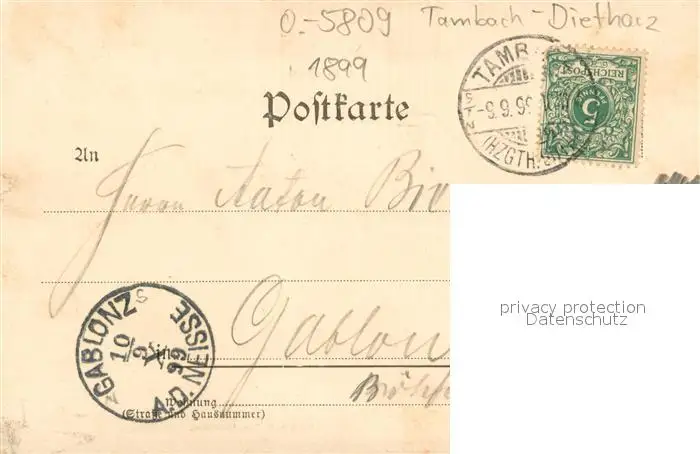 O.-5809 Tambach-Dietharz
1899
Postkarte
TAMB
-9.9.99
(HZGTH.
REICHSPOST
5
PFENNIG
An
Herrn Anton
privacy protection
Datenschutz
GABLONZ A.D. NEISSE
10/9
99
Gablon
in
Wohnung
(Straße und Hausnummer)